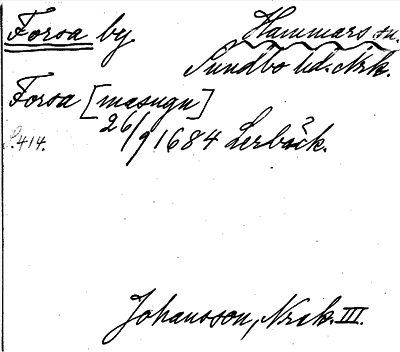 Forsa by Hammars sn.
Sundbo hd. Nrk.
Forsa [masugn]
S. 414. 26/9 1684 Lerbäck.
Johansson, Nrak. III.